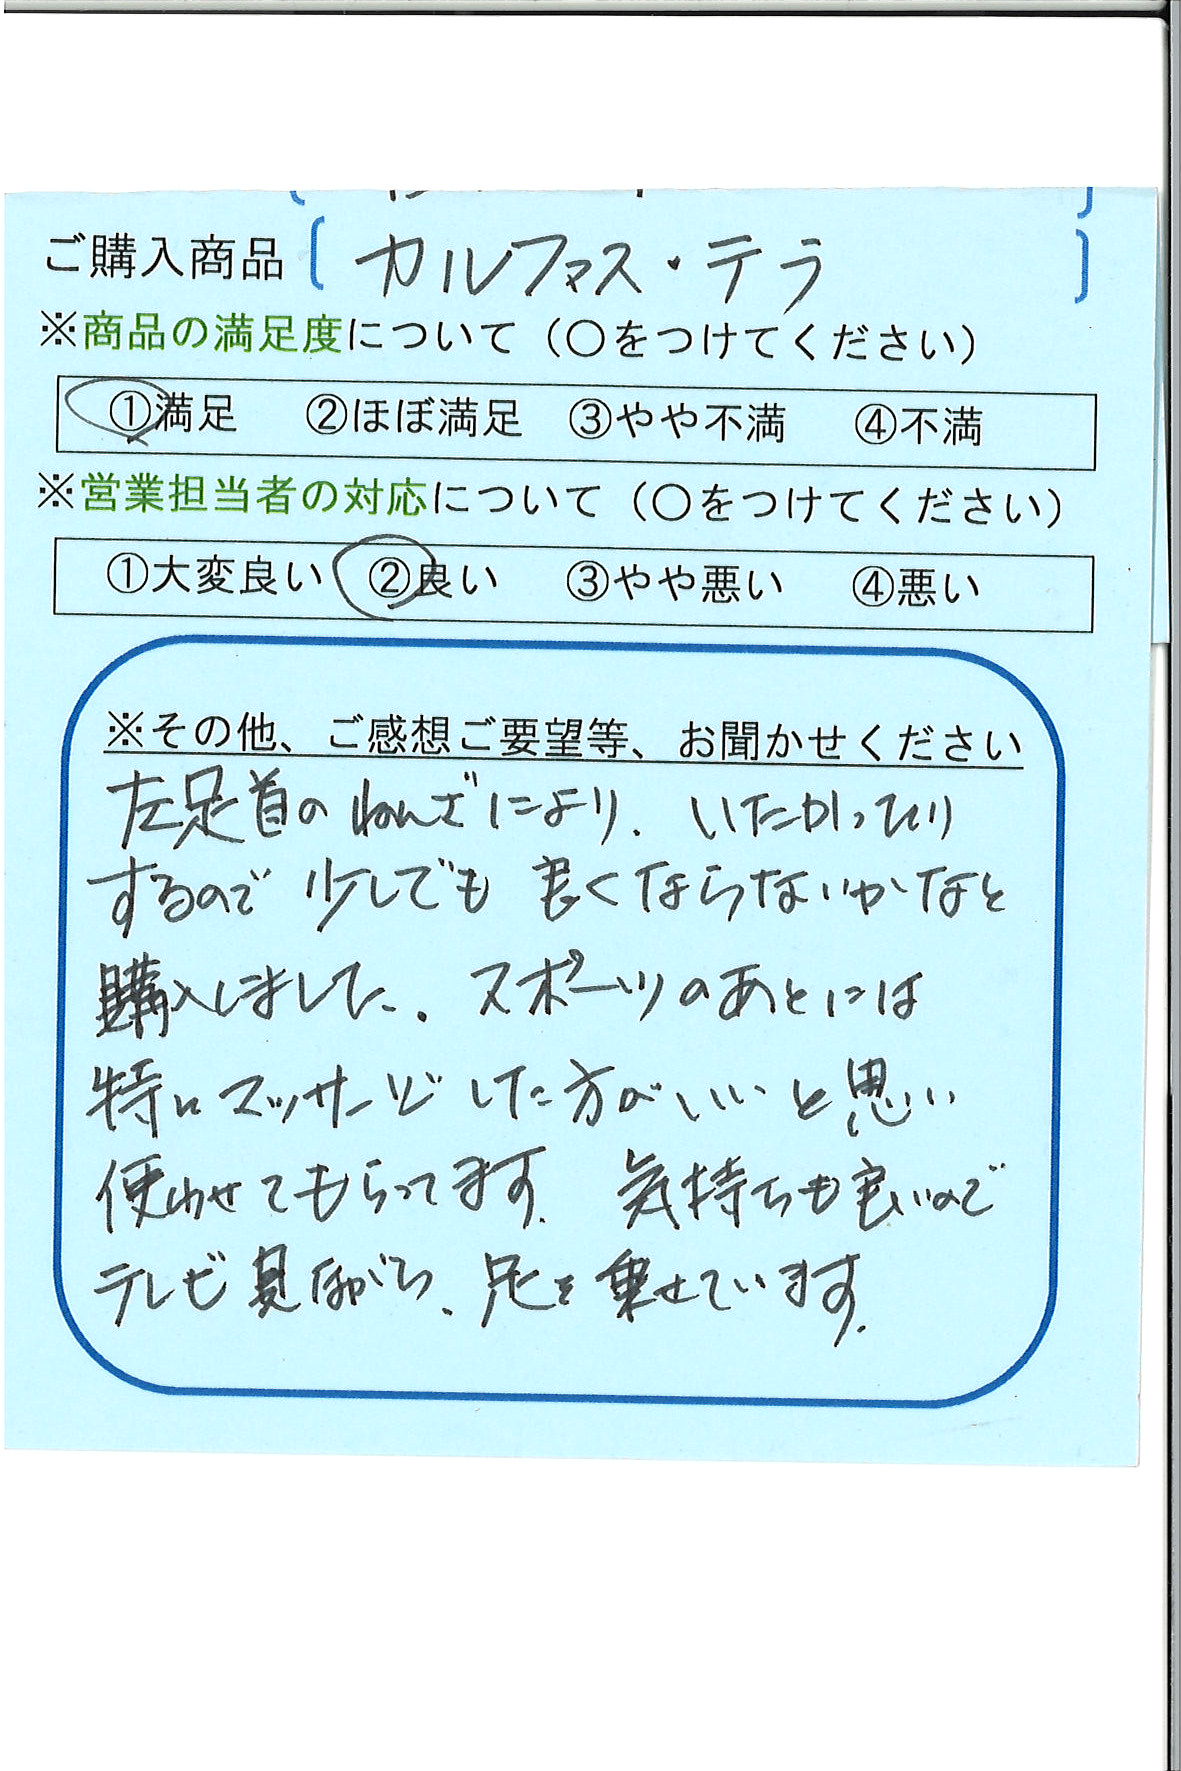 ご購入商品 カルファス・テラ
※商品の満足度について（○をつけてください）
①満足 ②ほぼ満足 ③やや不満 ④不満
※営業担当者の対応について（○をつけてください）
①大変良い ②良い ③やや悪い ④悪い
※その他、ご感想ご要望等、お聞かせください
左足首のねんざにより、いたかったり
するので少しでも良くならないかなと
購入しました。スポーツのあとには
特にマッサージした方がいいと思い
使わせてもらってます。気持ちも良いので
テレビ見ながら、足を乗せています。